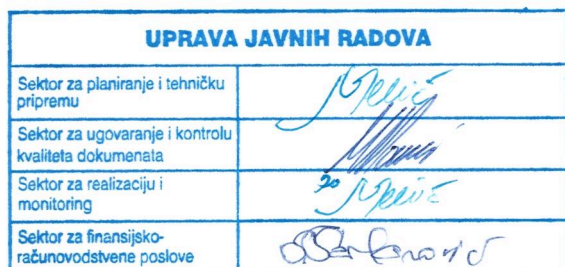 UPRAVA JAVNIH RADOVA
Sektor za planiranje i tehničku
pripremu
Sektor za ugovaranje i kontrolu
kvaliteta dokumenata
Sektor za realizaciju i
monitoring
Sektor za finansijsko-
računovodstvene poslove